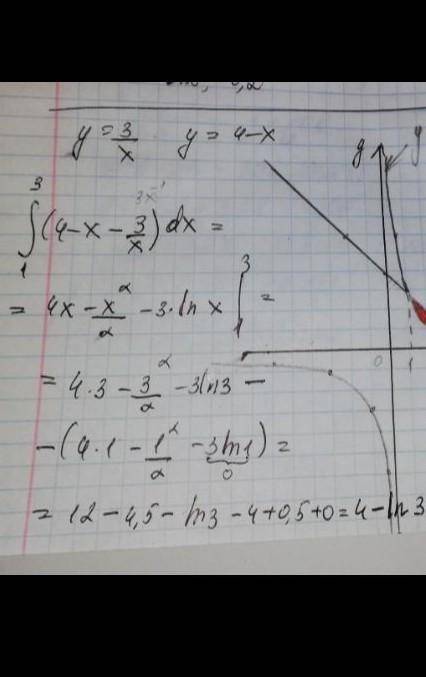 y = 3/x y = 4-x
y y
∫₁³ (4-x-3/x) dx = 3x⁻¹
= 4x - x²/2 - 3·ln x |₁³ =
= 4·3 - 3²/2 - 3ln3 -
0 1
- (4·1 - 1²/2 - 3ln1) =
0
= 12 - 4,5 - ln3 - 4 + 0,5 + 0 = 4 - ln 3